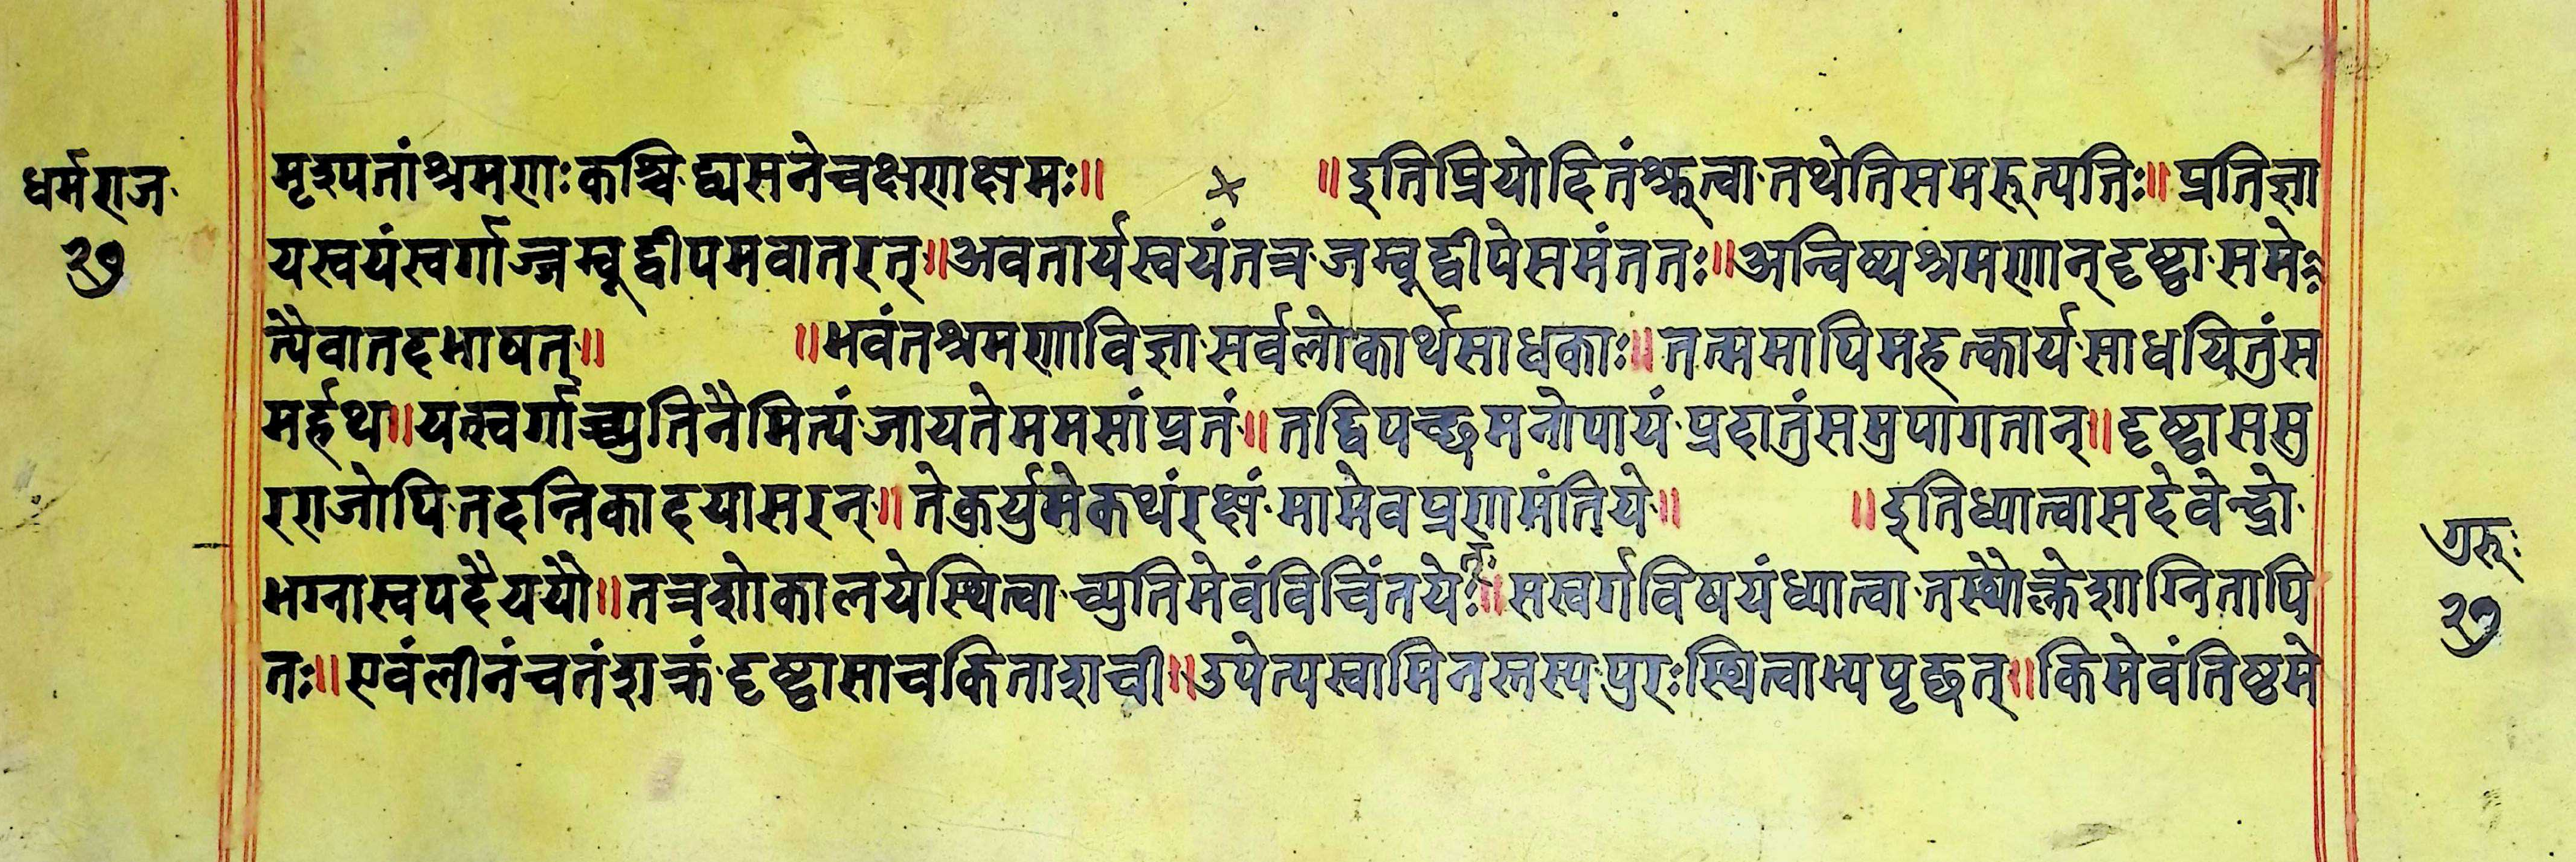 धर्मराज
२७
मृद्यपतांश्रमणःकश्चिद्व्यसनेचक्षणाक्षमः॥ ॥इतिप्रियोदितंश्रुत्वातथेतिसमरुत्पतिः॥प्रतिज्ञा
यस्वयंस्वर्गाज्जम्बूद्वीपमवातरत्॥अवतार्यस्वयंतत्रजम्बूद्वीपेसमंततः॥अन्विष्यश्रमणान्दृष्ट्वासमे
त्यैवातदभाषत्॥ ॥भवंतश्रमणाविज्ञासर्वलोकार्थसाधकाः॥तन्ममापिमहत्कार्यसाधयितुंस
मर्हथ॥यत्स्वर्गाच्च्युतिनैमित्यंजायतेममसांप्रतं॥तद्विपच्छमनोपायंप्रदातुंसमुपागतान्॥दृष्ट्वाससु
रराजोपितदन्तिकादयासरन्॥तेक्रर्युमेकथंरक्षंमामेवप्रणमंतिये॥ ॥इतिध्यात्वासदेवेन्द्रो
भग्नास्वपदैययौ॥तत्रशोकालयेस्थित्वाच्युतिमेवंविचिंतये॥सस्वर्गविषयंध्यात्वातस्थौक्लेशाग्नितापि
तः॥एवंलीनंचतंशक्रंदृष्ट्वासाचकिताशची॥उपेत्यस्वामिनस्तस्यपुरःस्थित्वाभ्यपृच्छत्॥किमेवंतिष्ठमे
गुरूः
२७